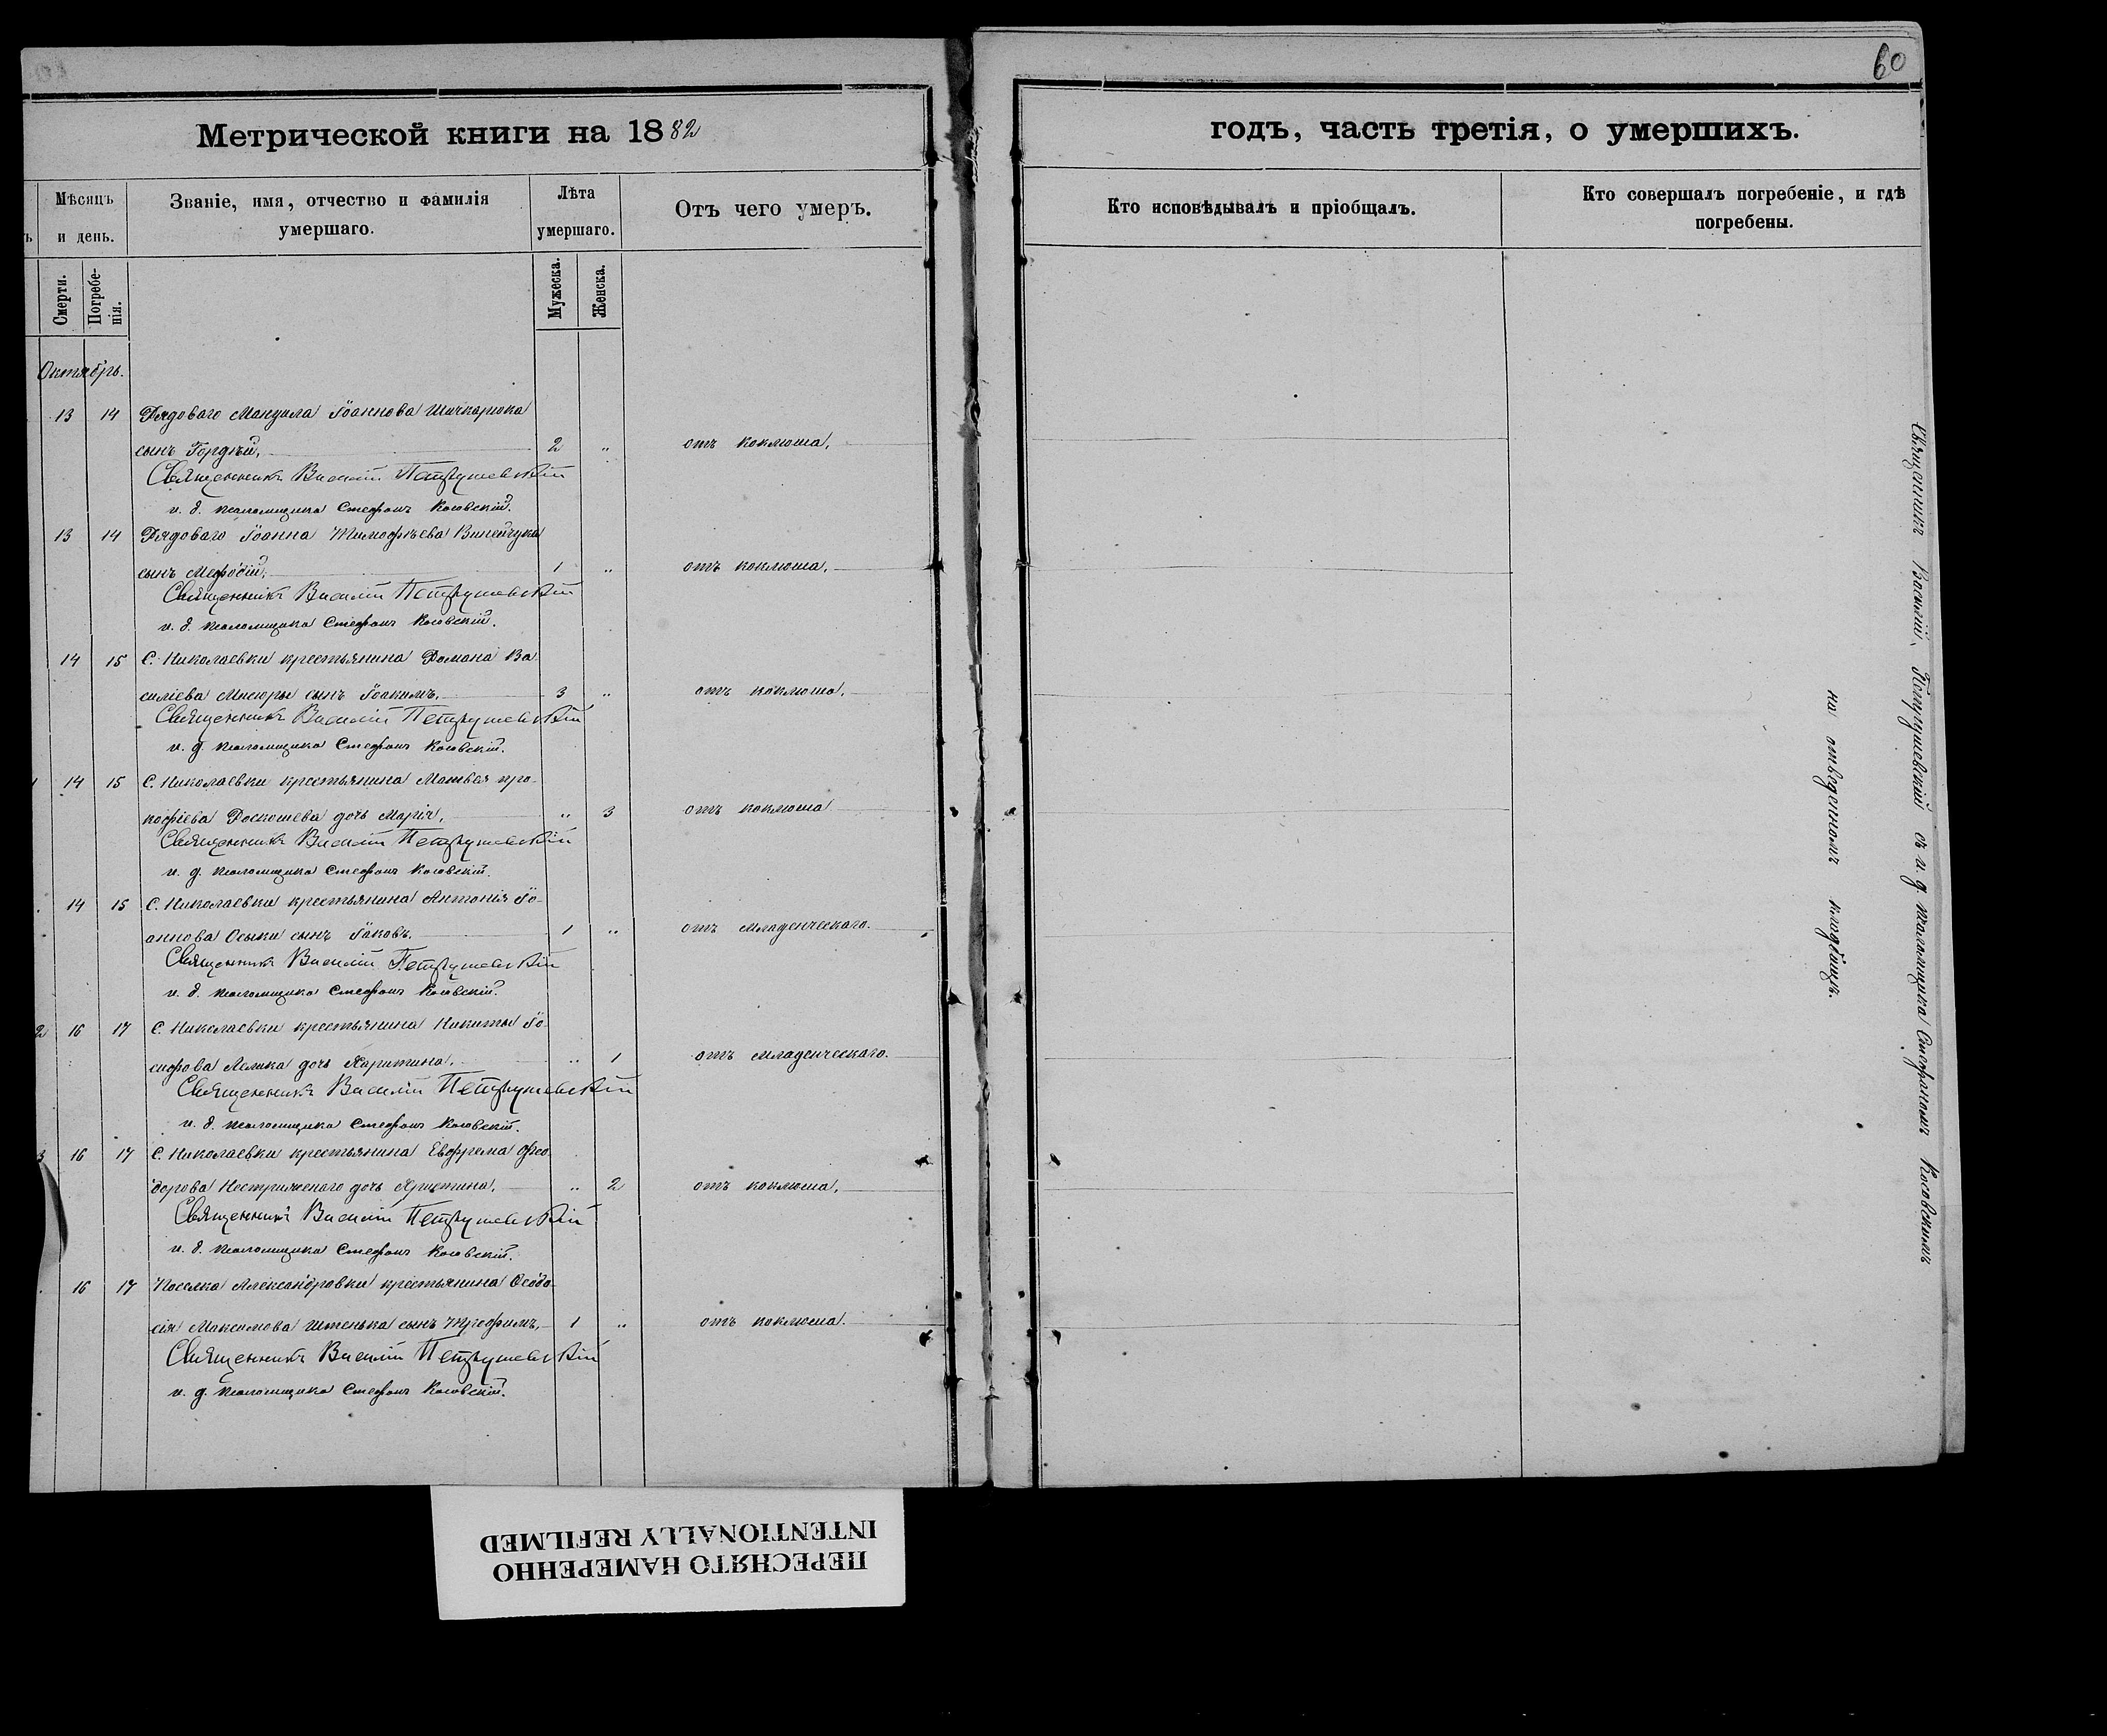 60
Метрической книги на 1882
годъ, часть третія, о умершихъ.
Мѣсяцъ и день.
Званіе, имя, отчество и фамилія умершаго.
Лѣта умершаго.
Отъ чего умеръ.
Кто исповѣдывалъ и пріобщалъ.
Кто совершалъ погребеніе, и гдѣ погребены.
Смерти.
Погребенія.
Мужеска.
Женска.
Октябрь.
13 14 Рядоваго Іоаннова
сынъ Гордѣй. 2 " отъ коклюша.
Священникъ Василій Петрушевскій
и. д. псаломщика Стефанъ Косовскій.
13 14 Рядоваго Іоанна Тимофѣева
сынъ Мефодій. 1 " отъ коклюша.
Священникъ Василій Петрушевскій
и. д. псаломщика Стефанъ Косовскій.
14 15 С. Николаевки крестьянина Романа Ва-
силіева сынъ Іоакимъ. 3 " отъ коклюша.
Священникъ Василій Петрушевскій
и. д. псаломщика Стефанъ Косовскій.
14 15 С. Николаевки крестьянина Матвея про-
кофіева дочь Марія. " 3 отъ коклюша
Священникъ Василій Петрушевскій
и. д. псаломщика Стефанъ Косовскій.
14 15 С. Николаевки крестьянина Антонія Іо-
аннова Осыки сынъ Іаковъ. 1 " отъ младенческаго.
Священникъ Василій Петрушевскій
и. д. псаломщика Стефанъ Косовскій.
2 16 17 С. Николаевки крестьянина Никиты Іо-
сифова дочь Харитина. " 1 отъ младенческаго.
Священникъ Василій Петрушевскій
и. д. псаломщика Стефанъ Косовскій.
3 16 17 С. Николаевки крестьянина Евфрема Фео-
дорова дочь Христина. " 2 отъ коклюша.
Священникъ Василій Петрушевскій
и. д. псаломщика Стефанъ Косовскій.
16 17 Поселка Александровки крестьянина Феодо-
сія Максимова сынъ Трофимъ. 1 " отъ коклюша.
Священникъ Василій Петрушевскій
и. д. псаломщика Стефанъ Косовскій.
Священникъ Василій Петрушевскій съ и. д. псаломщика Стефаномъ Косовскимъ
на отведенномъ кладбищѣ.
ПЕРЕСНЯТО НАМЕРЕННО
INTENTIONALLY REFILMED